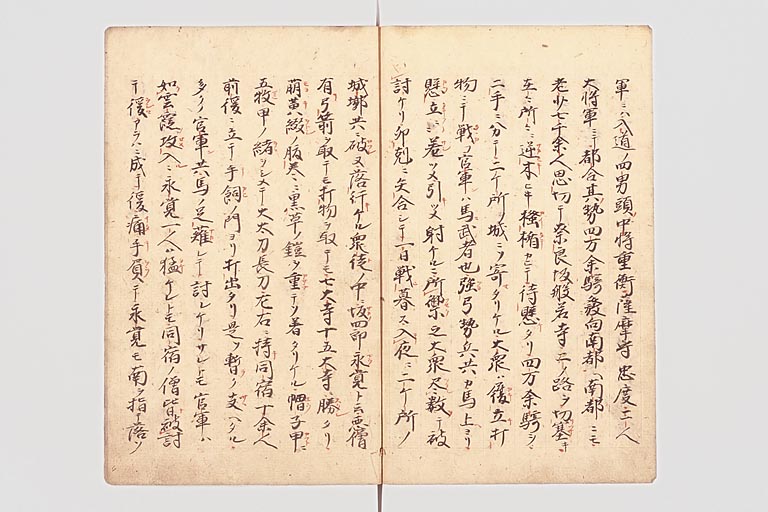 軍ニハ入道ノ四男頭中将重衡薩摩守忠度二人
大将軍ニテ都合其勢四万余騎発向南都ニ南都ニモ
老少七千余人思切テ奈良坂般若寺二ノ路ヲ切塞キ
在々所々ニ逆木ヒキ掻楯カヒテ待懸タリ四万余騎ヲ
二手ニ分テ二ケ所ノ城ニソ寄タリケル大衆ハ歩立打
物ニテ戦フ官軍ハ馬武者也強弓勢兵共カ馬上ヨリ
懸立々々巻メ引ツメ射ケルニ所禦之大衆尽数テ被
討ケリ卯剋ニ矢合シテ一日戦暮ス入夜ニ二ケ所ノ
城墎共ニ破ヌ落行ケル衆徒ノ中ニ坂四郎永覚ト云悪僧
有弓箭ヲ取テモ打物ヲ取テモ七大寺十五大寺ニ勝タリ
萌黄綴ノ腹巻ニ黒革ノ鎧ヲ重テソ着タリケル帽子甲ニ
五牧甲ノ緒ヲシメテ大太刀長刀左右ニ持同宿十余人
前後ニ立テ手飼ノ門ヨリ打出タリ是ソ暫ク支ヘタル
多ノ官軍共馬ノ足薙レテ討レケリサレトモ官軍ハ
如雲霞攻入ハ永覚一人ハ猛ケレトモ同宿ノ僧皆被討
テ後アラハニ成テ後痛手負テ永覚モ南ヲ指テ落ヌ